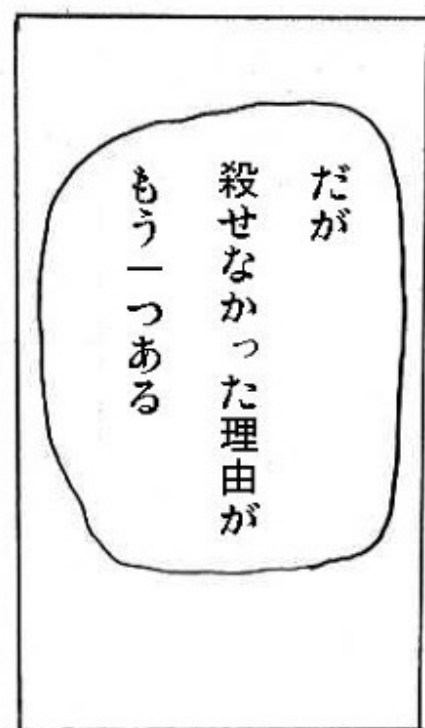 だが
殺せなかった理由が
もう一つある